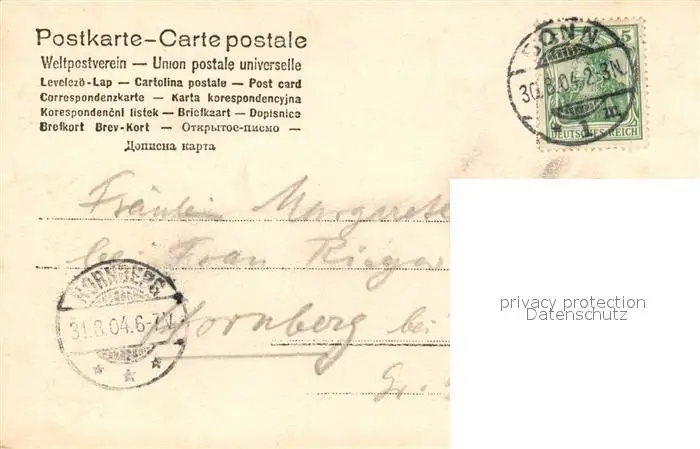 Postkarte – Carte postale
Weltpostverein — Union postale universelle
Levelező-Lap — Cartolina postale — Post card
Correspondenzkarte — Karta korespondencyjna
Korespondenční lístek — Briefkaart — Dopisnice
Brefkort Brev-Kort — Открытое-письмо —
Дописна карта
BONN
30.8.04.2-3N.
1 m
5
DEUTSCHES REICH
Fräulein Margarete
bei Frau Rieger
Hornberg bei
privacy protection
Datenschutz
HORNBERG
31.8.04.6-7V.